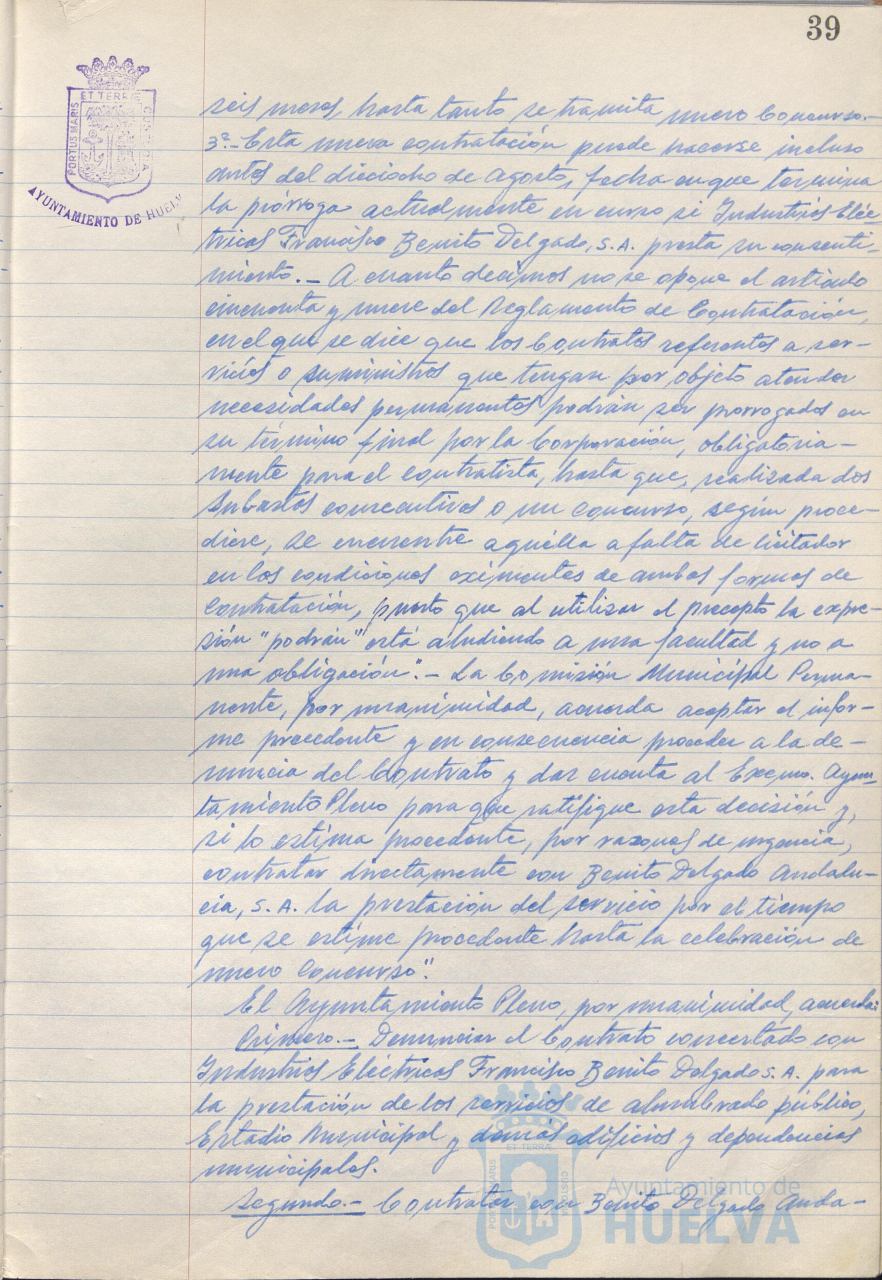 39
ET TERRÆ
PORTUS MARIS
CUSTODIA
AYUNTAMIENTO DE HUELV
seis meses, hasta tanto se tramita nuevo Concurso.-
3º.- Esta nueva contratación puede hacerse incluso
antes del dieciocho de Agosto, fecha en que termina
la prórroga actualmente en curso si Industrias Eléc
tricas Francisco Benito Delgado, S.A. presta su consenti-
miento.- A cuanto decimos no se opone el artículo
cincuenta y nueve del Reglamento de Contratación,
en el que se dice que los Contratos referentes a ser-
vicios o suministros que tengan por objeto atender
necesidades permanentes podrán ser prorrogados en
su término final por la Corporación, obligatoria-
mente para el contratista, hasta que, realizada dos
subastas consecutivas o un concurso, según proce-
diere, se encuentre aquélla a falta de licitador
en las condiciones eximentes de ambas formas de
Contratación, puesto que al utilizar el precepto la expre-
sión "podrán" está aludiendo a una facultad y no a
una obligación".- La Comisión Municipal Perma-
nente, por unanimidad, acuerda aceptar el infor-
me precedente y en consecuencia proceder a la de-
nuncia del Contrato y dar cuenta al Excmo. Ayun-
tamiento Pleno para que ratifique esta decisión y,
si lo estima procedente, por razones de urgencia,
contratar directamente con Benito Delgado Andalu-
cía, S.A. la prestación del servicio por el tiempo
que se estime procedente hasta la celebración de
nuevo Concurso".
El Ayuntamiento Pleno, por unanimidad, acuerda:
Primero.- Denunciar el Contrato concertado con
Industrias Eléctricas Francisco Benito Delgado S.A. para
la prestación de los servicios de alumbrado público,
Estadio Municipal y demás edificios y dependencias
municipales.
Segundo.- Contratar con Benito Delgado Anda-
ET TERRÆ
PORTUS MARIS
CUSTODIA
Ayuntamiento de
HUELVA